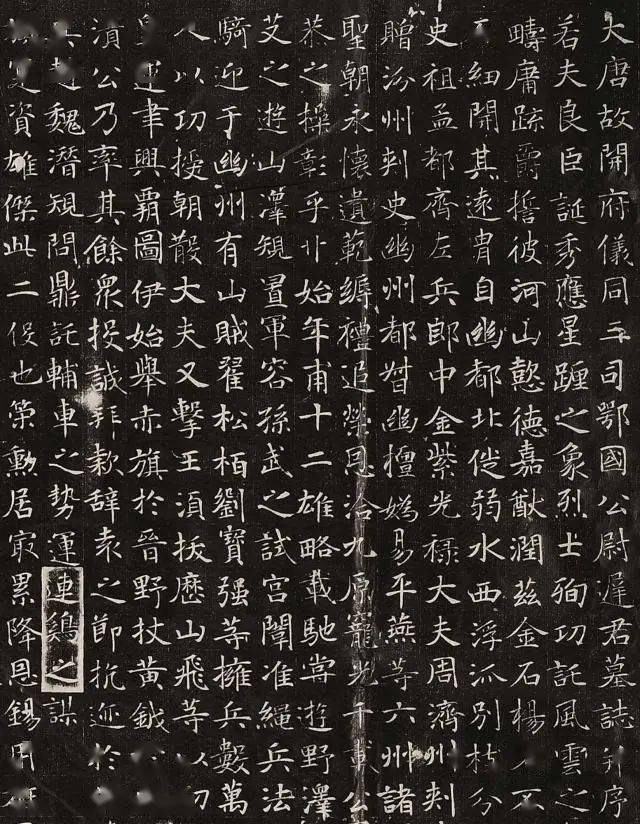 大唐故開府儀同三司鄂國公尉遲君墓誌并序
若夫良臣誕秀應星躔之象烈士殉功託風雲之
疇庸疏爵誓彼河山懿德嘉猷潤茲金石楊不
細開其遠胄自幽都北徙弱水西浮派別枝分
史祖孟都齊左兵郎中金紫光祿大夫周濟州刾
贈汾州刾史幽州都督幽檀媯易平燕等六州諸
聖朝永懷遺範縟禮追榮恩洽九原寵光千載公
恭之操彰乎丱始年甫十二雄略載馳嘗遊野澤
芟之遊山澤規置軍容孫武之試宮闈准繩兵法
騎迎于幽州有山賊翟松栢劉寶强等擁兵數萬
人以功授朝散大夫又擊王須拔歷山飛等以功
皇運聿興覇圖伊始舉赤旗於晉野杖黃鉞
濱公乃率其餘衆投誠拜款辭袁之節抗迹於
兵趙魏潛規問鼎託輔車之勢運連鷄之謀
資雄傑此二役也策勳居冣累降恩錫用